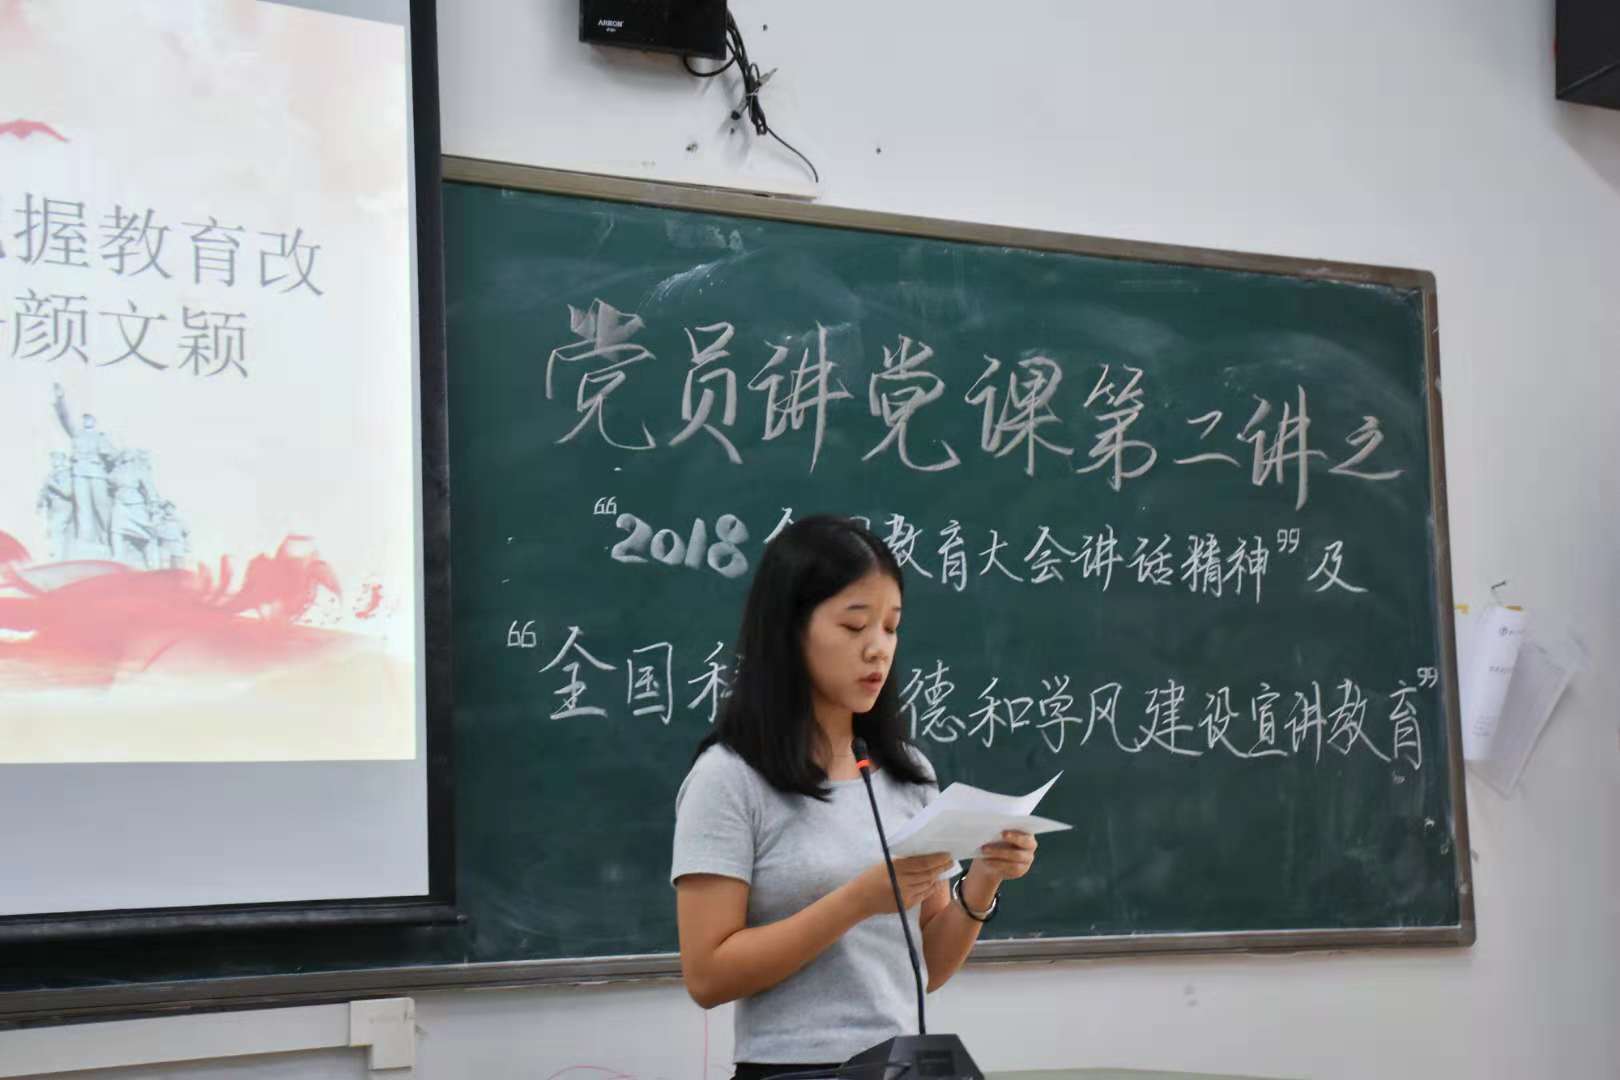 ARKON
握教育改
颜文颖
党员讲党课第二讲之
“2018全国教育大会讲话精神”及
“全国科 德和学风建设宣讲教育”